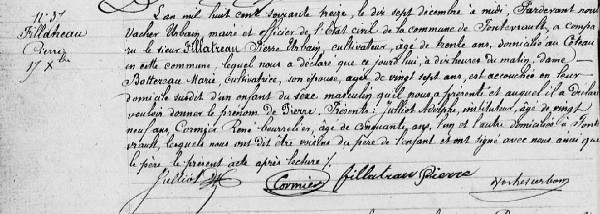 N° 37
Fillatreau
Pierre
17 Xbre
L'an mil huit cent soixante seize, le dix sept décembre à midi, Pardevant nous
Vacher Urbain, maire et officier de l'Etat civil de la commune de Fontevrault, a compa-
ru le sieur Fillatreau Pierre Urbain, cultivateur, âgé de trente ans, domicilié au Coteau
en cette commune, lequel nous a déclaré que ce jourd'hui, à dix heures du matin, dame
Bottereau Marie, cultivatrice, son épouse, agée de vingt sept ans, est accouchée en leur
domicile susdit d'un enfant du sexe masculin qu'il nous a présenté et auquel il a déclaré
vouloir donner le prénom de Pierre. Présents: Julliot Adolphe, instituteur, âgé de vingt
neuf ans, Cormier René bourrelier, âgé de cinquante ans, l'un et l'autre domiciliés à Fonte-
vrault, lesquels nous ont dit être voisins du père de l'enfant et ont signé avec nous ainsi que
le père le présent acte après lecture.
Julliot Cormier fillatreau Pierre Vacher urbain